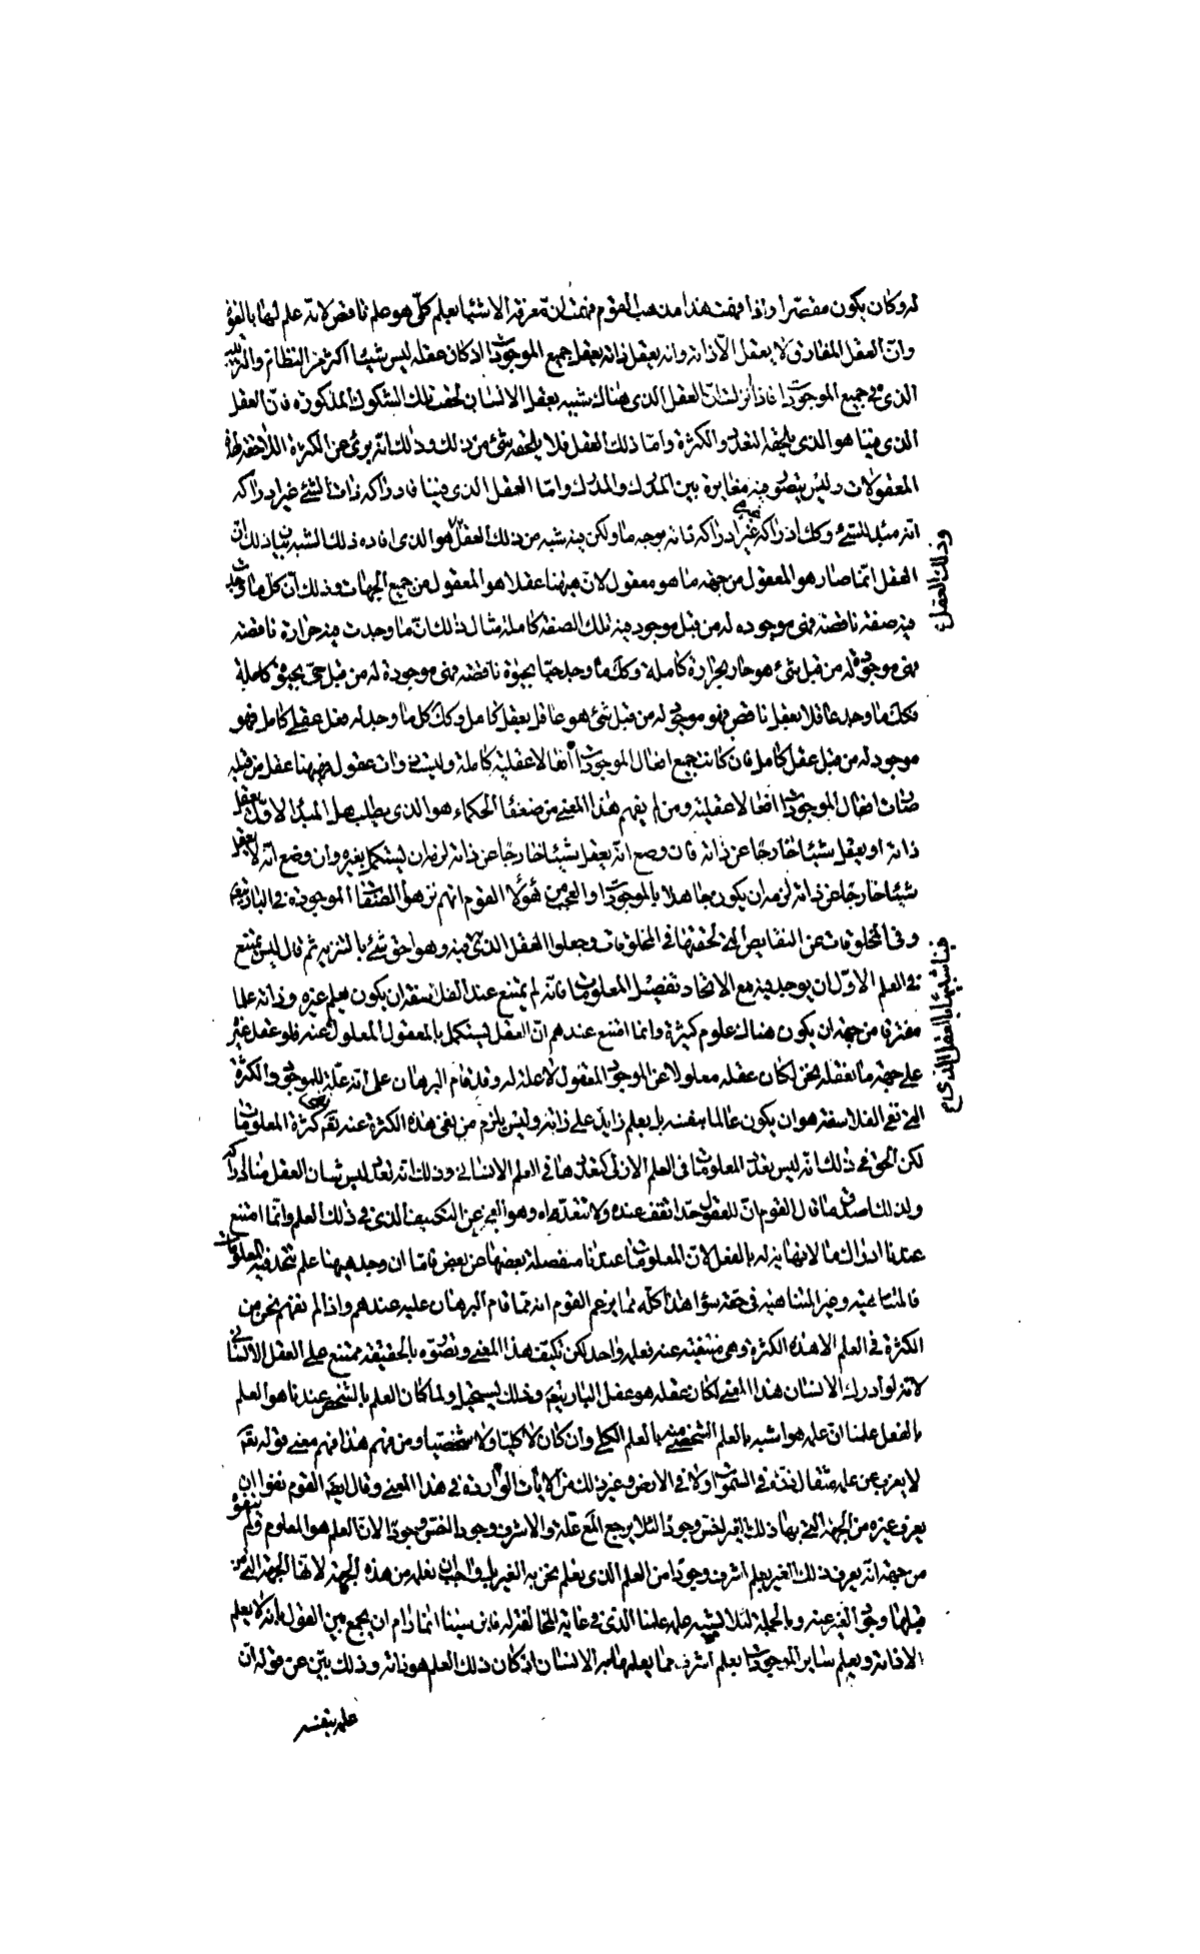 له وكان يكون مفتقرا واذا فهمت هذا من مذهب القوم فهمت ان معرفة الاشياء بعلم كلى هو علم ناقص لانه علم لها بالقوة
وان العقل المفارق لا يعقل الا ذاته وانه بعقل ذاته يعقل جميع الموجودات اذ كان عقله ليس شيئا اكثر من النظام والترتيب
الذى فى جميع الموجودات فاذا نزلت ان العقل الذى هناك شبيه بعقل الانسان لحقت تلك الشكوك المذكورة فان العقل
الذى فينا هو الذى يلحقه التعدد والكثرة واما ذلك العقل فلا يلحقه شىء من ذلك وذلك انه برىء عن الكثرة اللاحقة لهذه
المعقولات وليس يتصور فيه مغايرة بين المدرك والمدرك واما العقل الذى فينا فادراكه ذات الشىء غير ادراكه
انه مبدا للشىء وكك ادراكه غيره غير ادراكه ذاته بوجه ما ولكن فيه شبه من ذلك العقل هو الذى افاده ذلك الشبه بيان ذلك ان
وذلك العقل
العقل انما صار هو المعقول من جهة ما هو معقول لان ههنا عقلا هو المعقول من جميع الجهات وذلك ان كل ما وجدت
فيه صفة ناقصة فهى موجوده له من قبل موجود فيه تلك الصفة كاملة مثال ذلك ان ما وجدت فيه حرارة ناقصة
فهى موجودة له من قبل شىء هو حار بحرارة كاملة وكك ما وجد حيا بحيوة ناقصة فهى موجودة له من قبل حى بحيوة كاملة
فكك ما وجد عاقلا بعقل ناقص فهو موجود له من قبل شىء هو عاقل بعقل كامل وكك كل ما وجد له فعل عقلى كامل فهو
موجود له من قبل عقل كامل فان كانت جميع افعال الموجودات افعالا عقلية كاملة وليست ذوات عقول فههنا عقل من قبله
صارت افعال الموجودات افعالا عقلية ومن لم يفهم هذا المعنى من ضعفاء الحكماء هو الذى يطلب هل المبدا الاول يعقل
ذاته او يعقل شيئا خارجا عن ذاته فان وضع انه يعقل شيئا خارجا عن ذاته لزمه ان يستكمل بغيره وان وضع انه لا يعقل
شيئا خارجا عن ذاته لزمه ان يكون جاهلا بالموجودات والعجب من هؤلاء القوم انهم نزهوا الصفات الموجودة فى البارى تعم
وفى المخلوقات عن النقايص التى لحقتها فى المخلوقات وجعلوا العقل الذى فيه وهو احق شىء بالتنزيه ثم قال ليس يمتنع
فينا شبيها بالعقل الذى م
فى العلم الاول ان يوجد فيه مع الاتحاد تفصيل المعلومات فانه لم يمتنع عند الفلاسفة ان يكون يعلم غيره وذاته علما
مفترقا من جهة ان يكون هناك علوم كثيرة وانما امتنع عندهم ان العقل ليستكمل بالمعقول المعلول عنه فلو عقل غيره
على جهة ما نعقله نحن لكان عقله معلولا عن الموجود المعقول لا علة له وقد قام البرهان على انه علة للموجود والكثرة
التى نفى الفلاسفة هو ان يكون عالما بنفسه بل بعلم زايد على ذاته وليس يلزم من نفى هذه الكثرة عنه تعم كثرة المعلومات
لكن الحق فى ذلك انه ليس تعدد المعلومات فى العلم الازلى كتعددها فى العلم الانسانى وذلك انه تعدد ليس شان العقل منا ادراكه
ولذلك اصدق ما قال القوم ان للعقول حدا تقف عنده ولا تتعداه وهو العجز عن التكييف الذى فى ذلك العلم وانما امتنع
عندنا ادراك ما لا نهاية له بالفعل لان المعلومات عندنا منفصلة بعضها عن بعض فاما ان وجد ههنا علم تتحد فيه المعلومات
فالمتناهية وغير المتناهية فى حقه سواء هذا كله مما يزعم القوم انه قد قام البرهان عليه عندهم واذا لم نفهم نحن من
الكثرة فى العلم الا هذه الكثرة وهى منتفية عنه فعلمه واحد لكن تكييف هذا المعنى وتصوره بالحقيقة ممتنع على العقل الانسانى
لانه لو ادرك الانسان هذا المعنى لكان عقله هو عقل البارى تعم وذلك يستحيل ولما كان العلم بالشخص عندنا هو العلم
بالفعل علمنا ان علمه هو اشبه بالعلم الشخصى منه بالعلم الكلى وان كان لا كليا ولا شخصيا ومن فهم هذا فهم معنى قوله تعم
لا يعزب عن علمه مثقال ذرة فى السموات ولا فى الارض وغير ذلك من الايات الواردة فى هذا المعنى وقال ايضا القوم نفوا ان
يعرف غيره من الجهة التى بها ذلك الغير اخس وجودا لئلا يرجع المعلول علة والاشرف وجودا اخس وجودا لان العلم هو المعلوم ولم ينفوه
من جهة انه يعرف ذلك الغير بعلم اشرف وجودا من العلم الذى نعلم نحن به الغير بل واجب ان نعلمه من هذه الجهة لانها الجهة التى من
قبلها وجود الغير عنه وبالجملة لئلا يشبه علمه علمنا الذى فى غاية المخالفة له فابن سينا انما رام ان يجمع بين القول بانه لا يعلم
الا ذاته ويعلم ساير الموجودات بعلم اشرف مما يعلمها به الانسان اذ كان ذلك العلم هو ذاته وذلك بين من قوله ان
علمه بنفسه